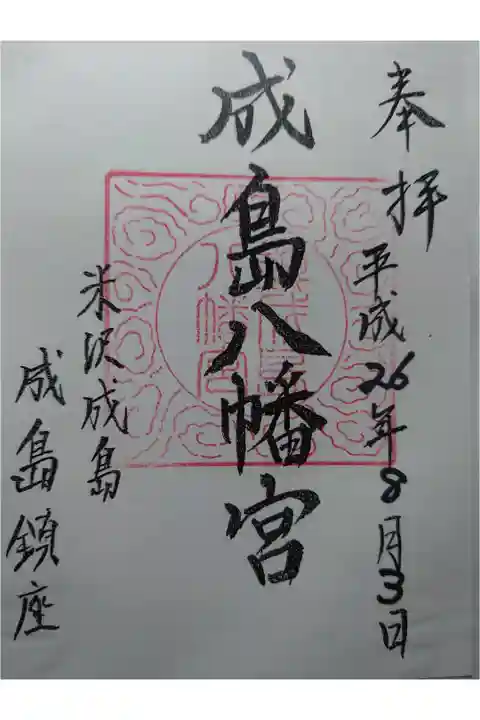 奉拝
平成26年8月3日
成島八幡宮
米沢成島
成島鎮座